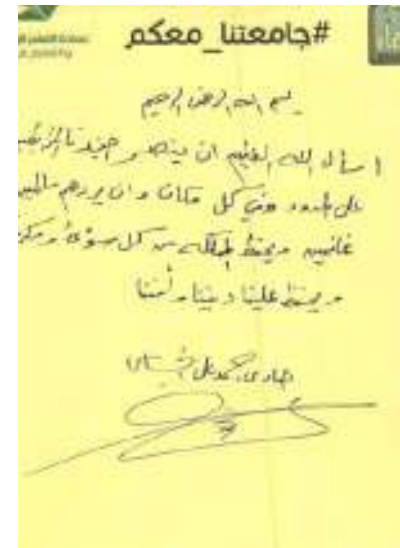 #جامعتنا_معكم
بسم الله الرحمن الرحيم
اسأل الله العظيم ان ينصر جنودنا
على الحدود وفي كل مكان وان يردهم سالمين
غانمين ويحفظ المملكة من كل سوء
ويحفظ علينا ديننا وأمننا
محمد علي